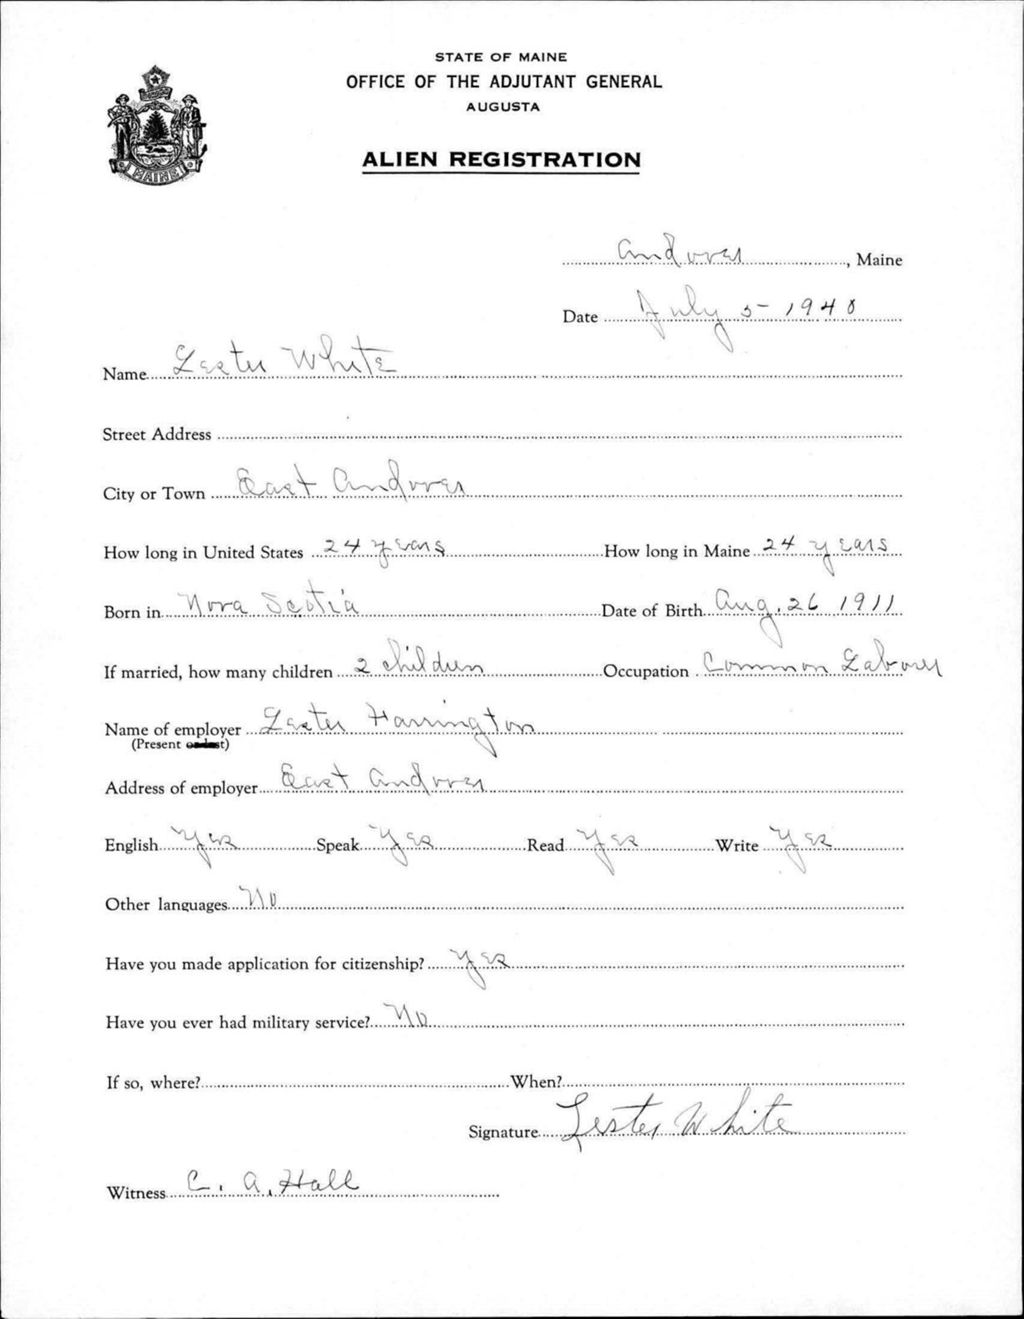 STATE OF MAINE
OFFICE OF THE ADJUTANT GENERAL
AUGUSTA
ALIEN REGISTRATION
MAINE
Andover, Maine
Date July 5 - 1940
Name Lester White
Street Address
City or Town East Andover
How long in United States 24 years How long in Maine 24 years
Born in Nova Scotia Date of Birth Aug. 26 1911
If married, how many children 2 children Occupation Common Laborer
Name of employer Lester Harrington
(Present or last)
Address of employer East Andover
English Yes Speak Yes Read Yes Write Yes
Other languages No
Have you made application for citizenship? Yes
Have you ever had military service? No
If so, where? When?
Signature Lester White
Witness C. A. Hall